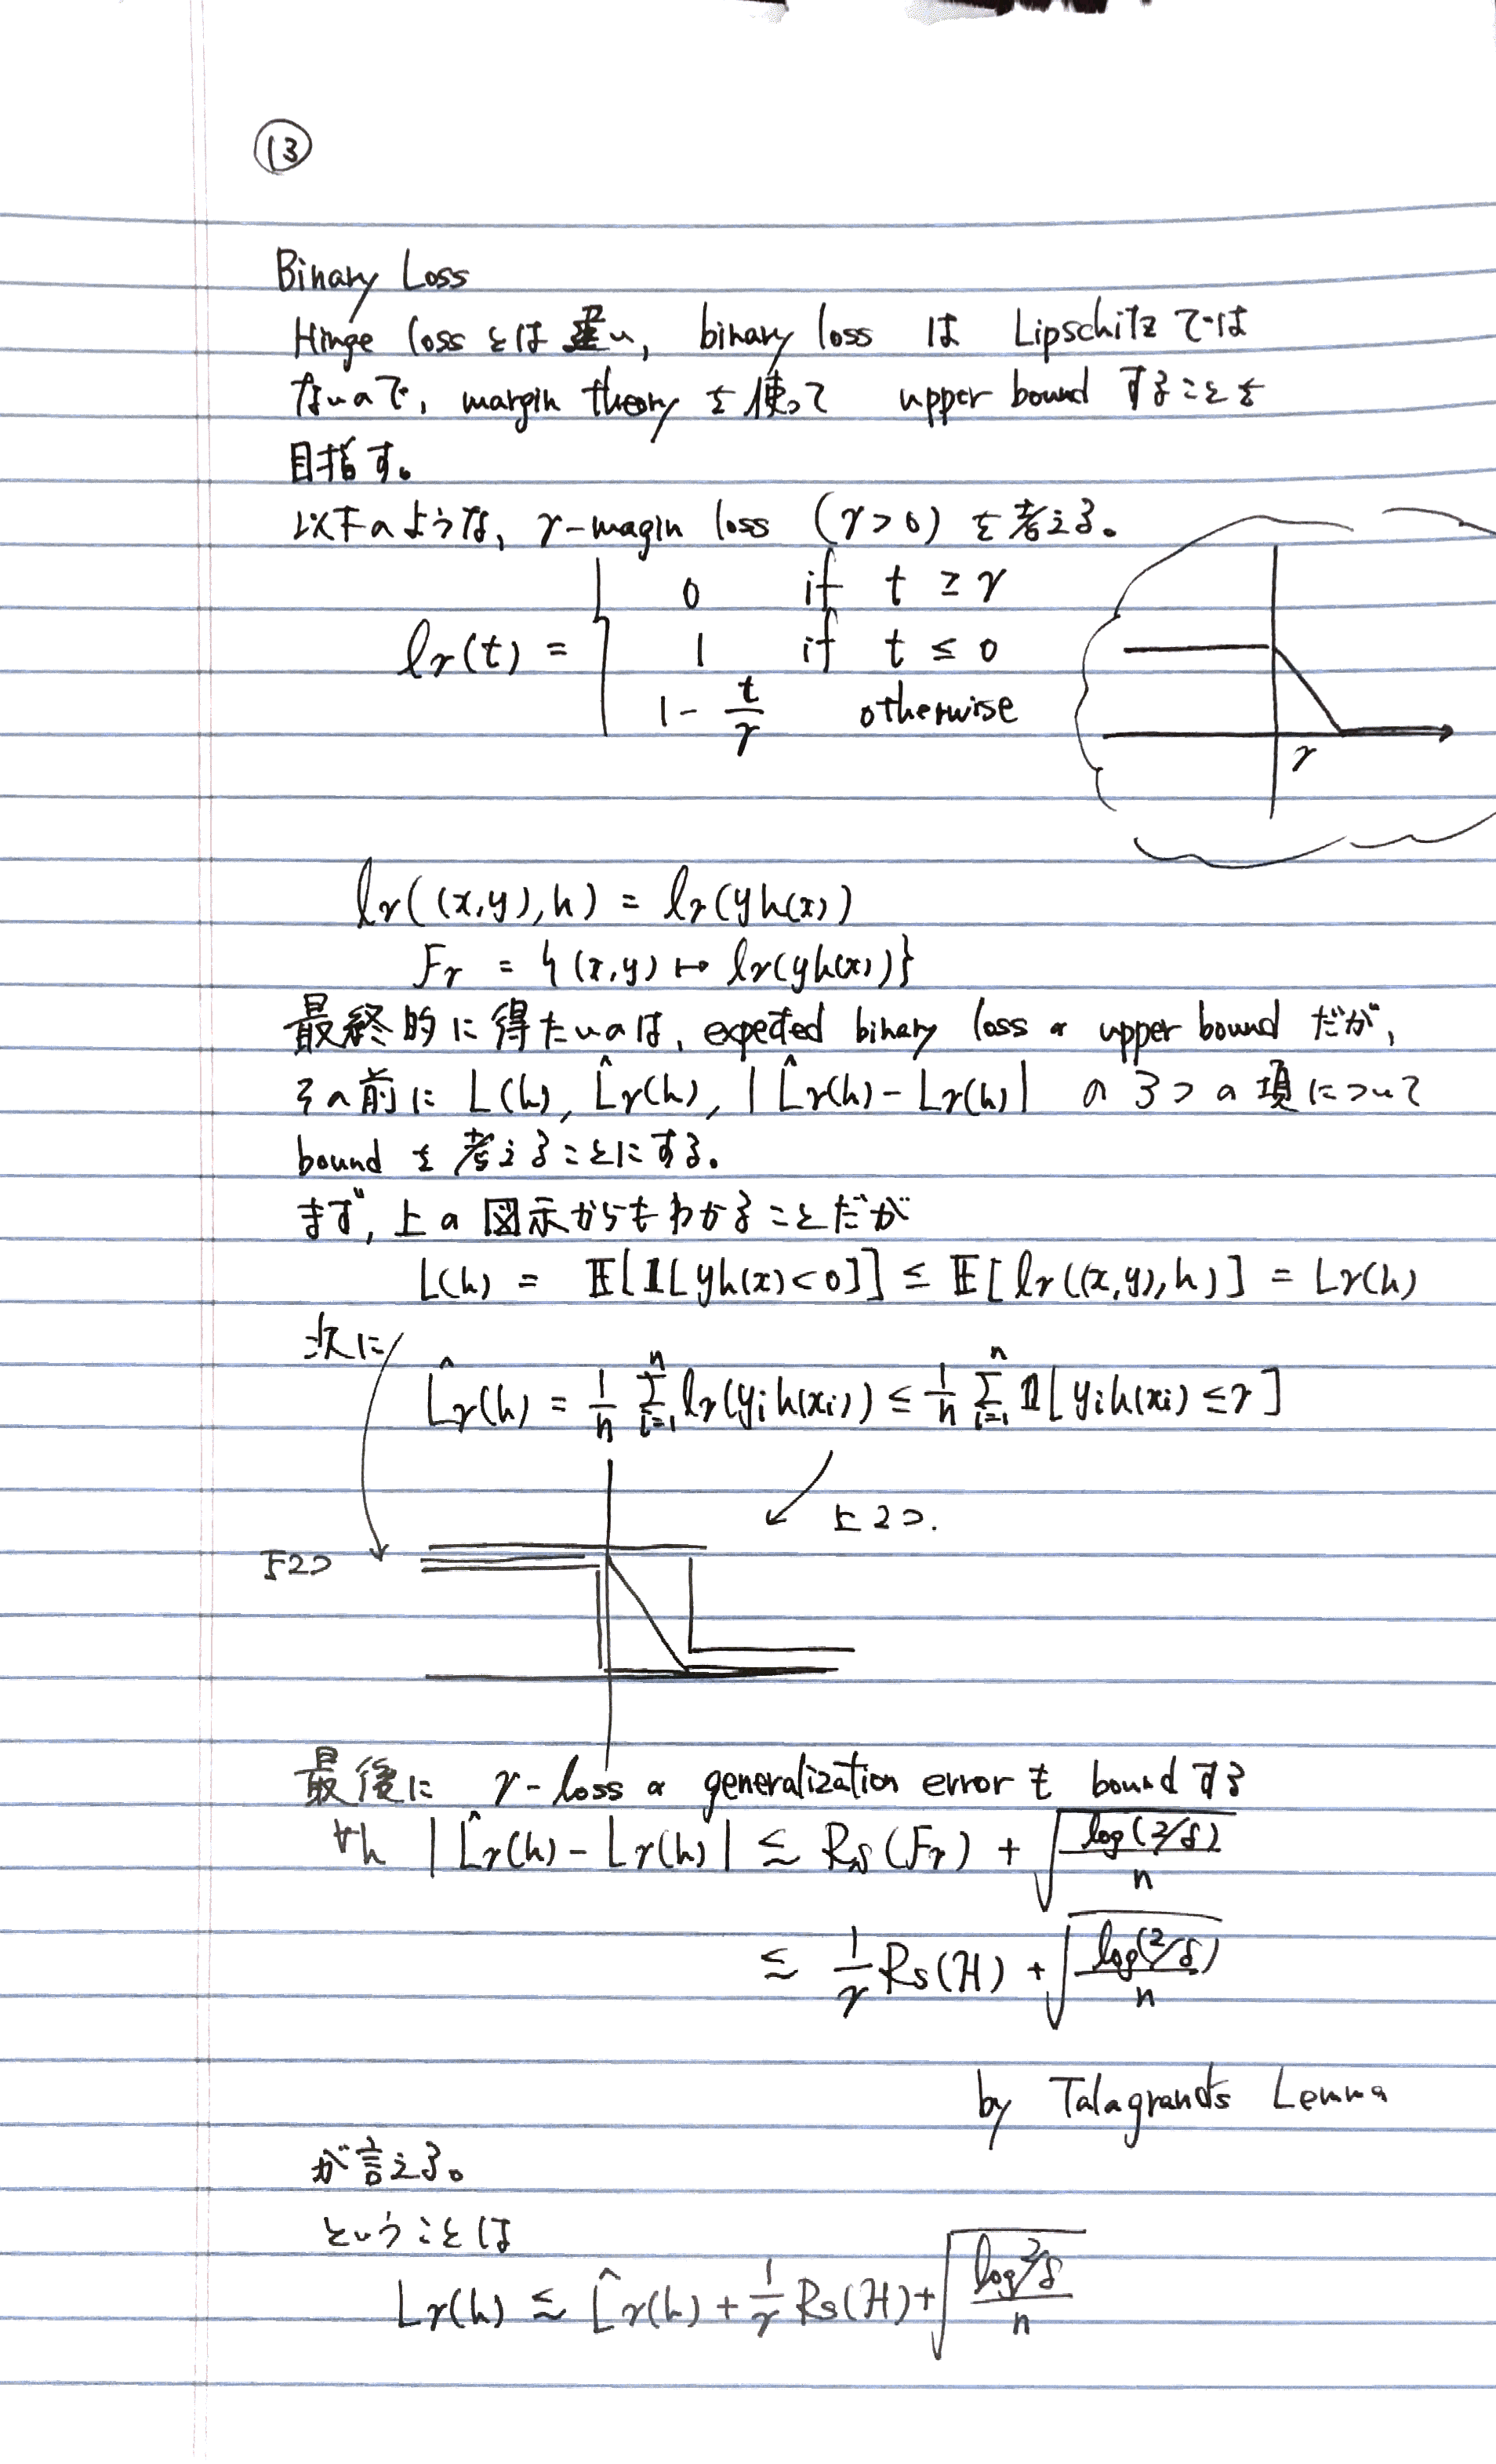 ⑬
Binary Loss
Hinge loss とは違い, binary loss は Lipschitz では
ないので, margin theory を使って upper bound することを
目指す。
以下のような, γ-magin loss (γ>0) を考える。
0 if t ≥ γ
lγ(t) = { 1 if t ≤ 0
1 - t/γ otherwise
γ
lγ((x,y),h) = lγ(yh(x))
Fγ = {(x,y) ↦ lγ(yh(x))}
最終的に得たいのは, expected binary loss の upper bound だが,
その前に L(h), L̂γ(h), |L̂γ(h) - Lγ(h)| の 3つの項について
bound を考えることにする。
まず, 上の図示からもわかることだが
L(h) = 𝔼[𝟙[yh(x)<0]] ≤ 𝔼[lγ((x,y),h)] = Lγ(h)
次に
L̂γ(h) = 1/n Σ_{i=1}^{n} lγ(yih(xi)) ≤ 1/n Σ_{i=1}^{n} 𝟙[yih(xi) ≤ γ]
上2つ.
下2つ
最後に γ-loss の generalization error を bound する
∀h |L̂γ(h) - Lγ(h)| ≲ Rs(Fγ) + √(log(2/δ)/n)
≲ 1/γ Rs(H) + √(log(2/δ)/n)
by Talagrand's Lemma
が言える。
ということは
Lγ(h) ≲ L̂γ(h) + 1/γ Rs(H) + √(log 2/δ / n)